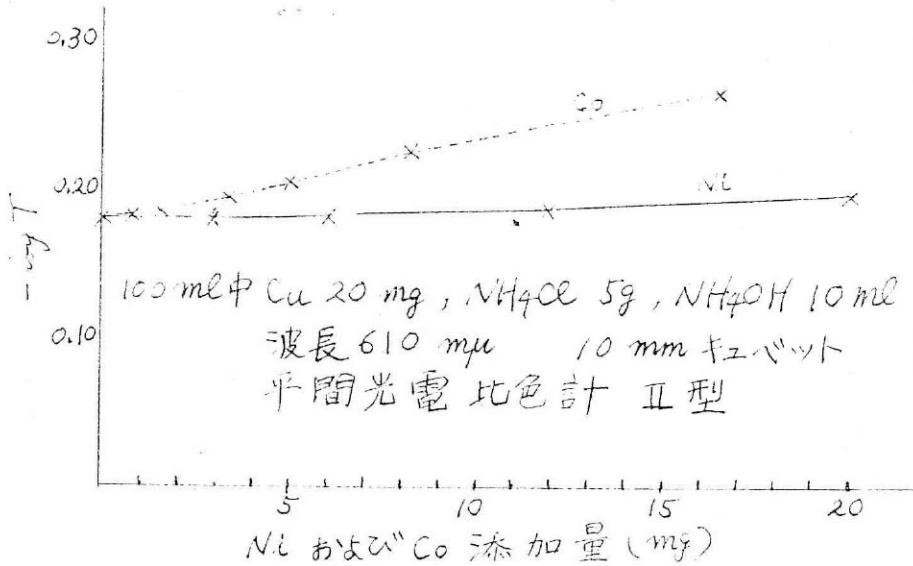 0.30
Co
0.20
Ni
-log T
100ml中 Cu 20 mg, NH4Cl 5g, NH4OH 10 ml
0.10
波長 610 mμ 10 mm キュベット
平間光電比色計 II型
5 10 15 20
Ni および Co 添加量 (mg)